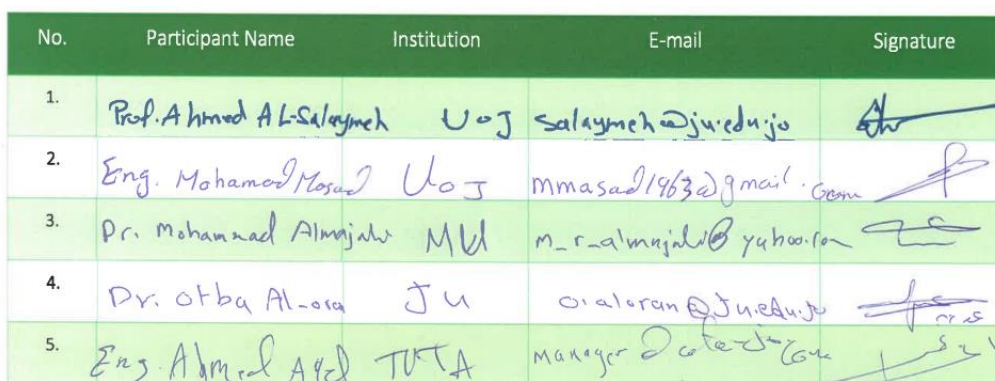 No. Participant Name Institution E-mail Signature
1. Prof. Ahmed AL-Salaymeh UoJ salaymeh@ju.edu.jo
2. Eng. Mohamad Masad UoJ mmasad1963@gmail.com
3. Dr. Mohammad Almajali MU m_r_almajali@yahoo.com
4. Dr. otba Al-ora JU o.aloran@Ju.edu.jo
5. Eng. Ahmed TUTA manager